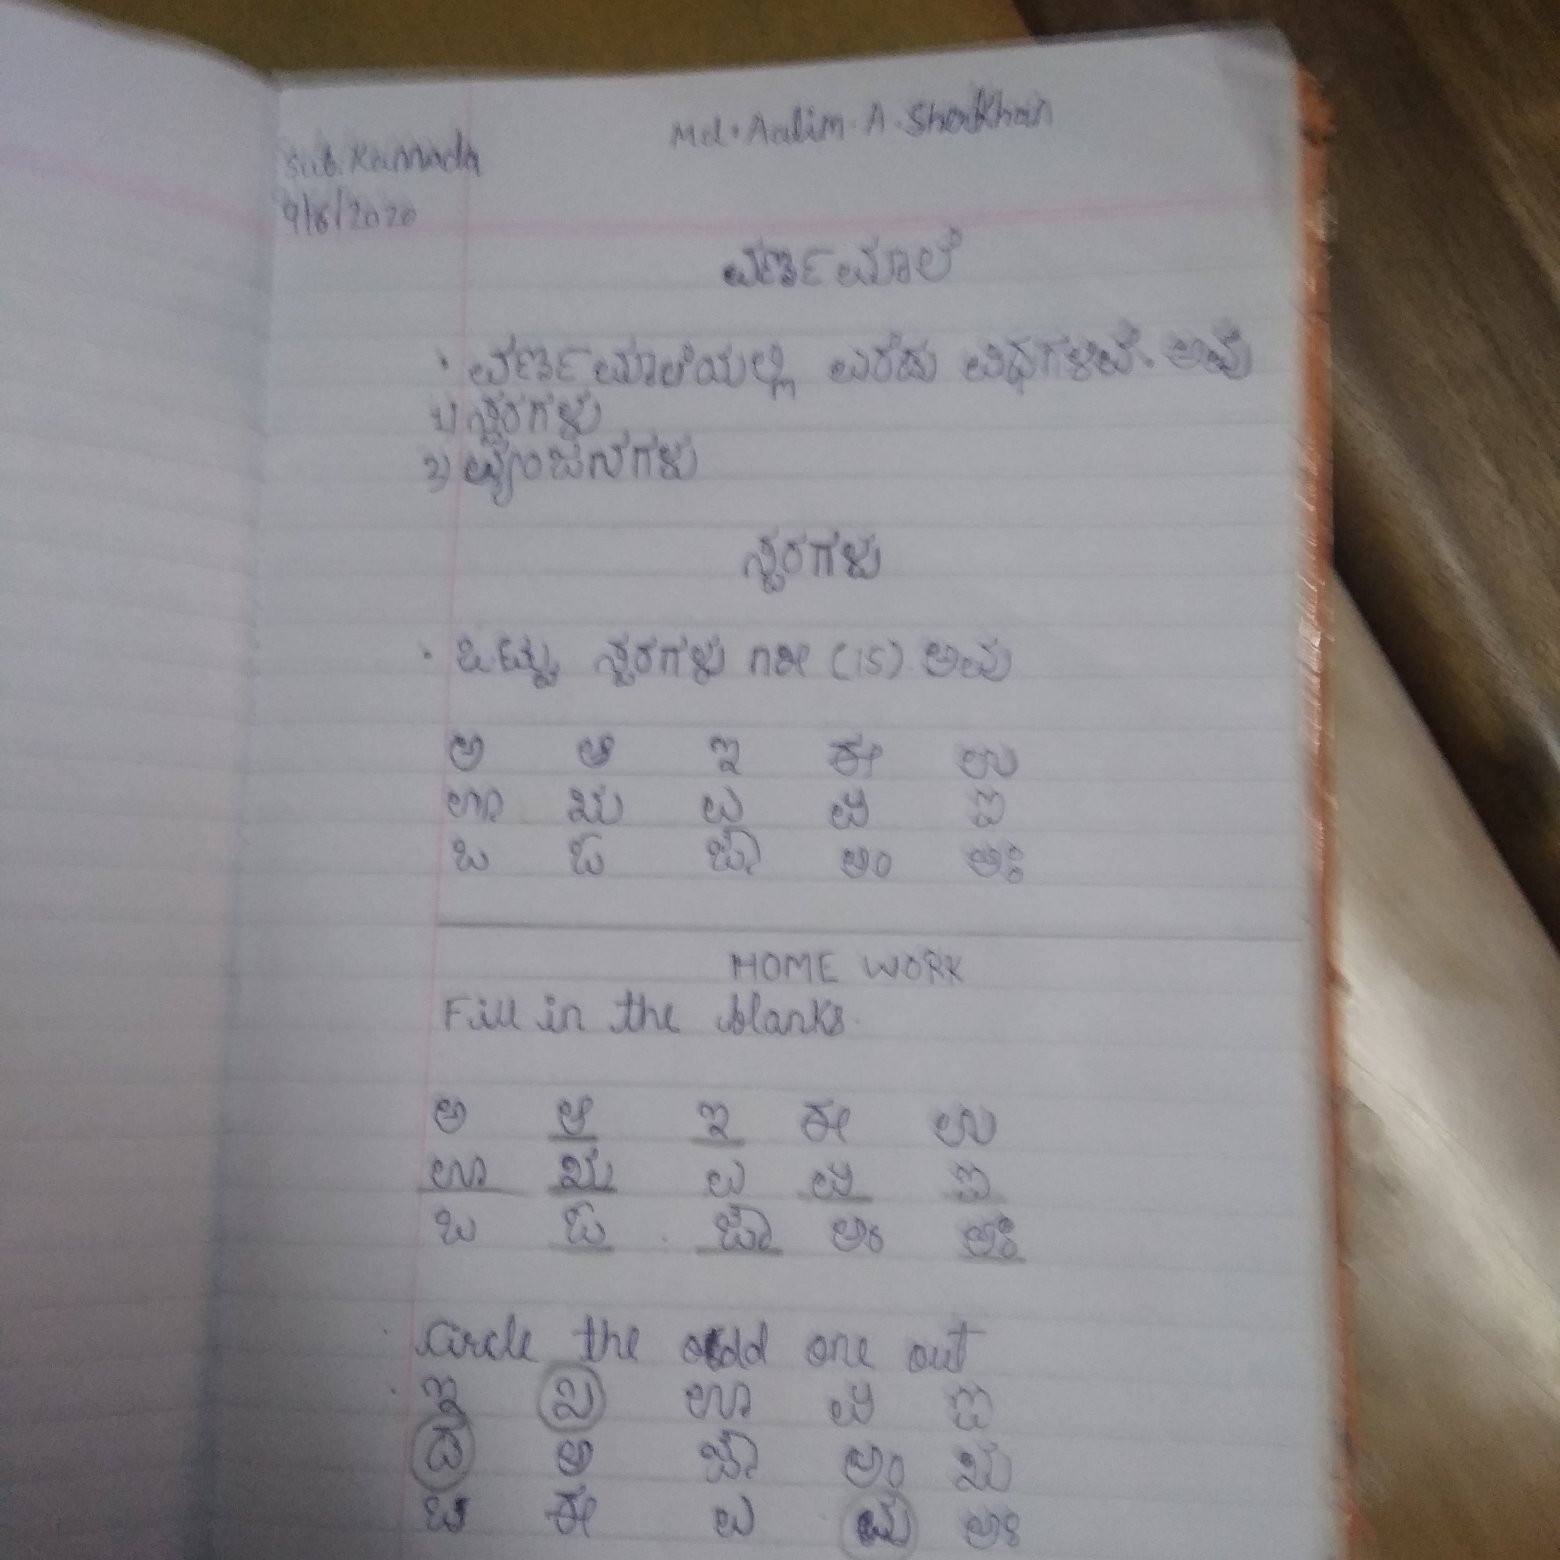 Md. Aalim. A. Sheikhan
Sub. Kannada
9/6/2020
ವರ್ಣಮಾಲೆ
· ವರ್ಣಮಾಲೆಯಲ್ಲಿ ಎರಡು ವಿಧಗಳಿವೆ. ಅವು
1) ಸ್ವರಗಳು
2) ವ್ಯಂಜನಗಳು
ಸ್ವರಗಳು
· ಒಟ್ಟು ಸ್ವರಗಳು ೧೫ (15) ಅವು
ಅ ಆ ಇ ಈ ಉ
ಊ ಋ ಎ ಏ ಐ
ಒ ಓ ಔ ಅಂ ಅಃ
HOME WORK
Fill in the blanks.
ಅ ಆ ಇ ಈ ಉ
ಊ ಋ ಎ ಏ ಐ
ಒ ಓ ಔ ಅಂ ಅಃ
Circle the odd one out
ಇ ಖ ಊ ಏ ಐ
ಡ ಅ ಔ ಅಂ ಋ
ಓ ಈ ಎ ಮ ಅಃ